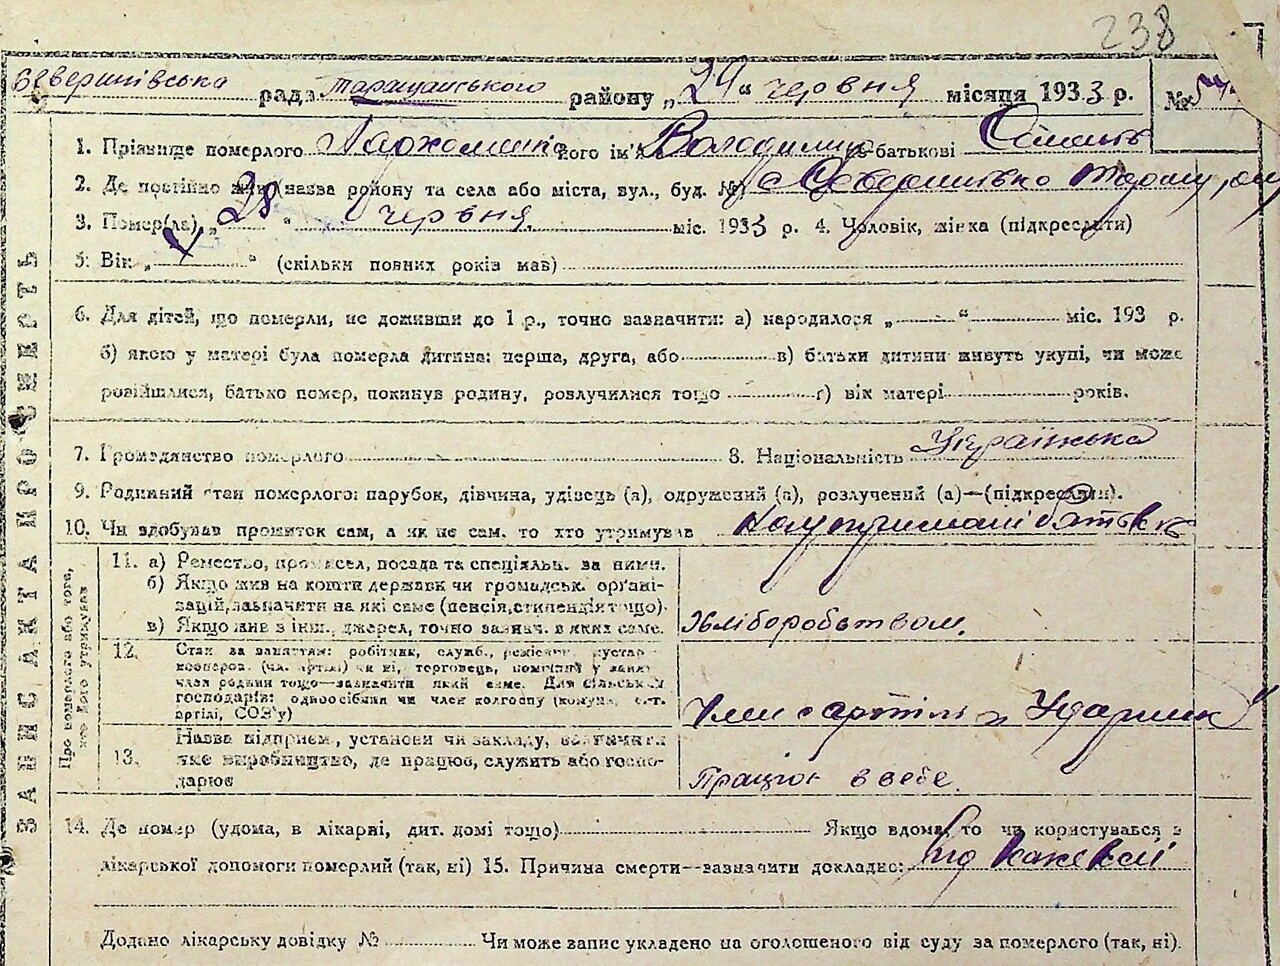 238
Северинівська рада Таращанського району „29“ червня місяця 1933 р. №
1. Прізвище померлого Пархоменко його ім'я Володимир по-батькові
2. Де постійно жив (назва району та села або міста, вул., буд. № с Северинівка
3. Помер(ла) „28“ червня. міс. 1933 р. 4. Чоловік, жінка (підкреслити)
5. Вік „ “ (скільки повних років мав)
6. Для дітей, що померли, не доживши до 1 р., точно зазначити: а) народилося „ “ міс. 193 р.
б) якою у матері була померла дитина: перша, друга, або в) батьки дитини живуть укупі, чи може
розійшлися, батько помер, покинув родину, розлучилися тощо г) вік матері років.
7. Громадянство померлого 8. Національність Українська
9. Родинний стан померлого: парубок, дівчина, удівець (а), одружений (а), розлучений (а)—(підкреслити).
10. Чи здобував прожиток сам, а як не сам, то хто утримував
ЗАПИС АКТА ПРО СМЕРТЬ
Про померлого або того, хто його утримував
11. а) Ремество, промисел, посада та спеціяльн. за ними.
б) Якщо жив на кошти держави чи громадськ. органі-
зацій, зазначити на які саме (пенсія, стипендія тощо).
в) Якщо жив з інш. джерел, точно зазнач. в яких саме. Хліборобством.
12. Стан за заняттям: робітник, служб., ремісник, кустар
кооперов. (чл. артілі) чи ні, торговець, помічний у занят.
член родини тощо—зазначити який саме. Для сільськ.
господарів: одноосібник чи член колгоспу (комуни, с.-г.
артілі, СОЗ'у) Член с артіль „Ударник“
13. Назва підприєм., установи чи закладу, зазначити
яке виробництво, де працює, служить або госпо-
дарює Працює в себе.
14. Де помер (удома, в лікарні, дит. домі тощо) Якщо вдома, то чи користувався з
лікарської допомоги померлий (так, ні) 15. Причина смерти—зазначити докладно: від кахексії
Додано лікарську довідку № Чи може запис укладено на оголошеного від суду за померлого (так, ні).